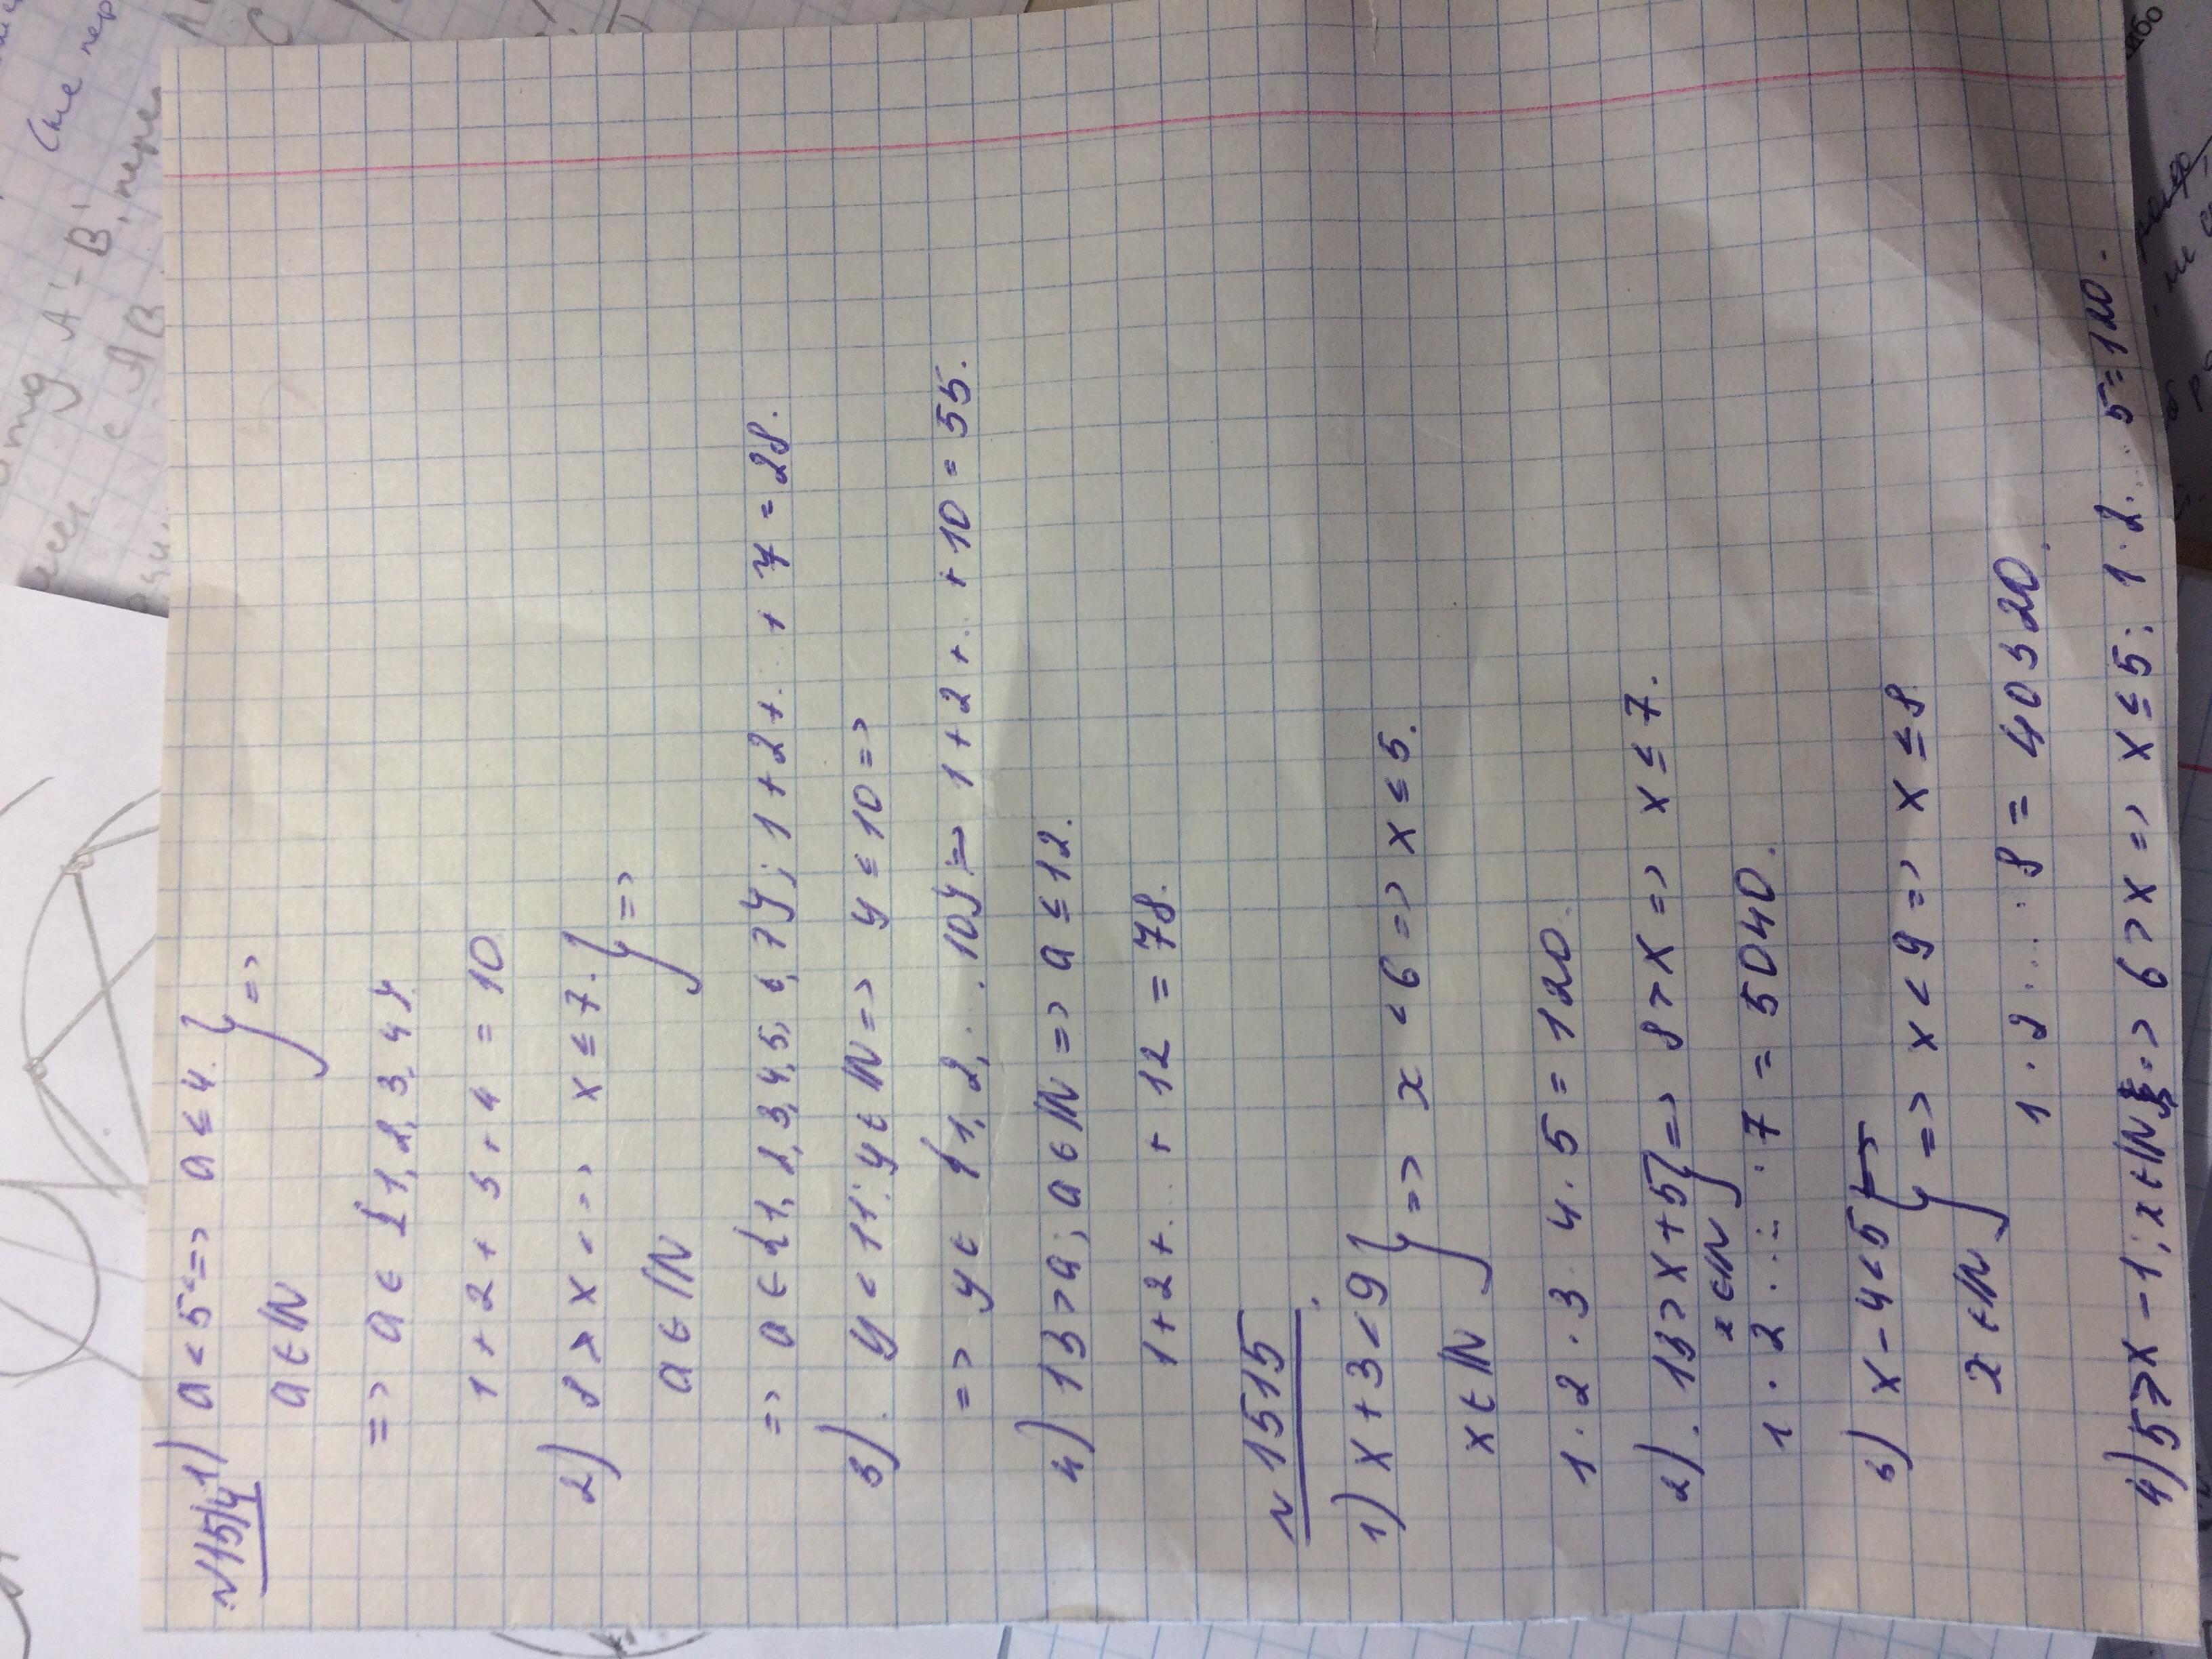 N1514 1) a < 5 => a ≤ 4. } =>
a ∈ ℕ
=> a ∈ {1, 2, 3, 4}
1 + 2 + 3 + 4 = 10
2) 8 > x <=> x ≤ 7. } =>
a ∈ ℕ
=> a ∈ {1, 2, 3, 4, 5, 6, 7}; 1 + 2 + ... + 7 = 28.
3). y < 11; y ∈ ℕ => y ≤ 10 =>
=> y ∈ {1, 2, ... 10} => 1 + 2 + ... + 10 = 55.
4) 13 > a; a ∈ ℕ => a ≤ 12.
1 + 2 + ... + 12 = 78.
N 1515
1) x + 3 < 9 } => x < 6 => x ≤ 5.
x ∈ ℕ
1 · 2 · 3 4 · 5 = 120.
2). 13 > x + 5 } => 8 > x => x ≤ 7.
x ∈ ℕ
1 · 2 · ... · 7 = 5040.
3) x - 4 < 5 } => x < 9 => x ≤ 8
x ∈ ℕ
1 · 2 · ... · 8 = 40320.
4) 5 > x - 1; x ∈ ℕ => 6 > x => x ≤ 5; 1 · 2 · ... 5 = 120.
с A B
A' - B'